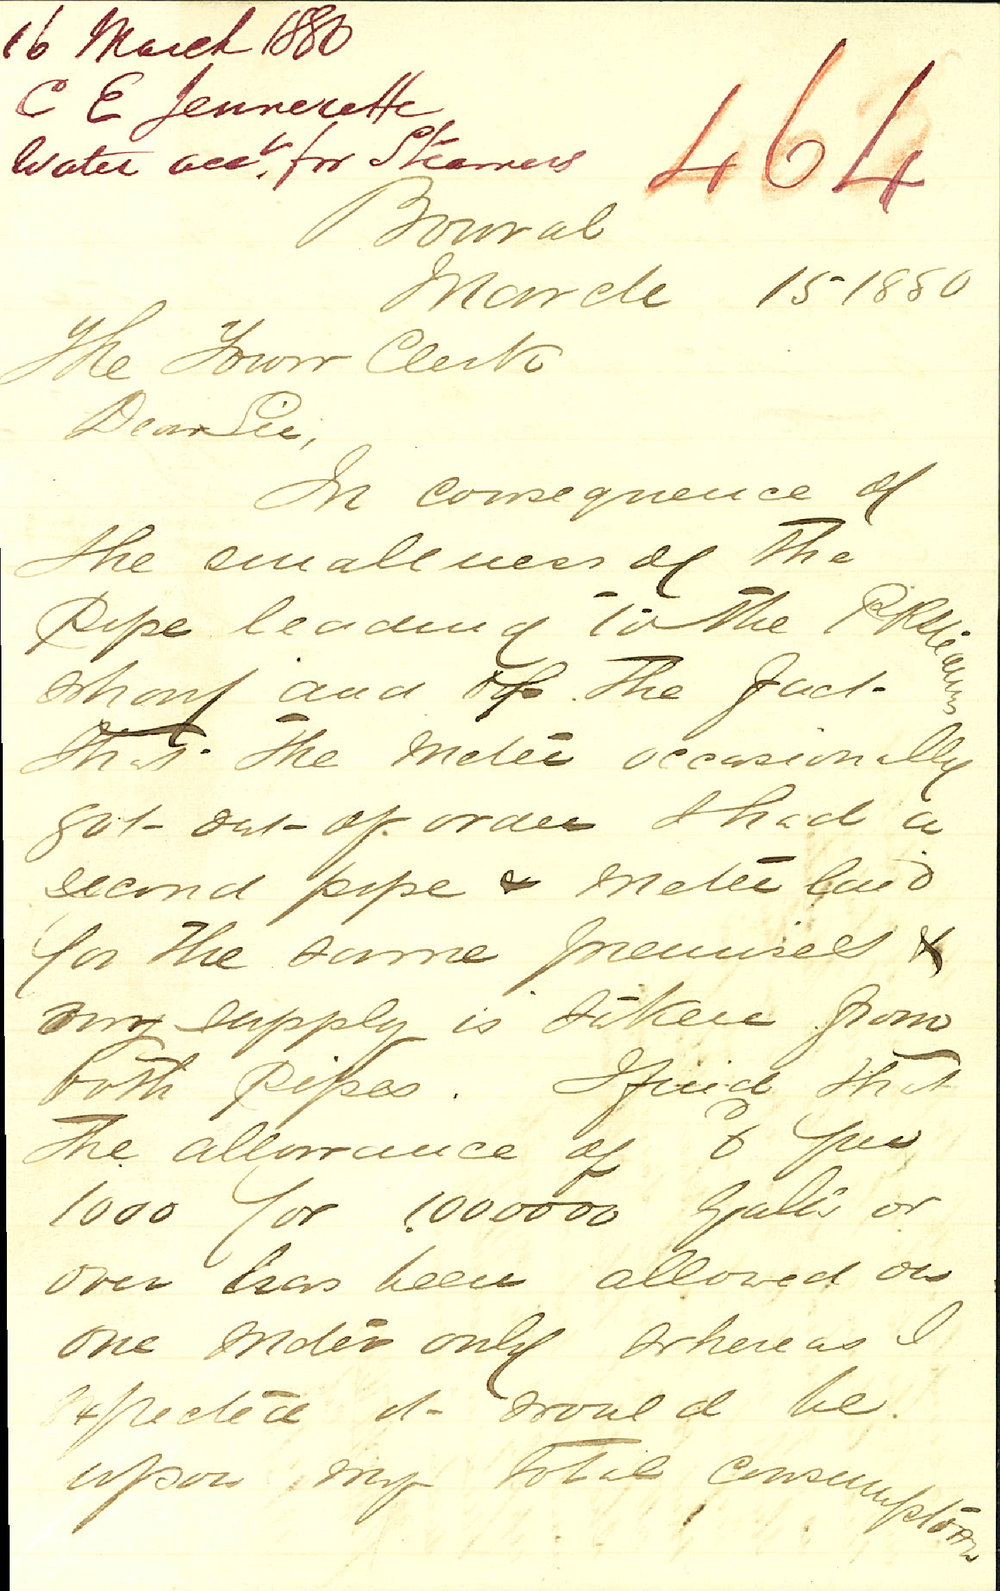 16 March 1880
C E Jennerette
Water acct. for Steamers
464
Bowral
March 15 1880
The Town Clerk
Dear Sir,
In consequence of
the smallness of the
Pipe leading to the P R Steamers
wharf and of the fact
that the meter occasionally
got out of order I had a
second pipe & meter laid
for the same premises &
my supply is taken from
both Pipes. I find that
the allowance of per
1000 for 1000000 Galls or
over has been allowed on
one meter only whereas I
expected it would be
upon my total consumption